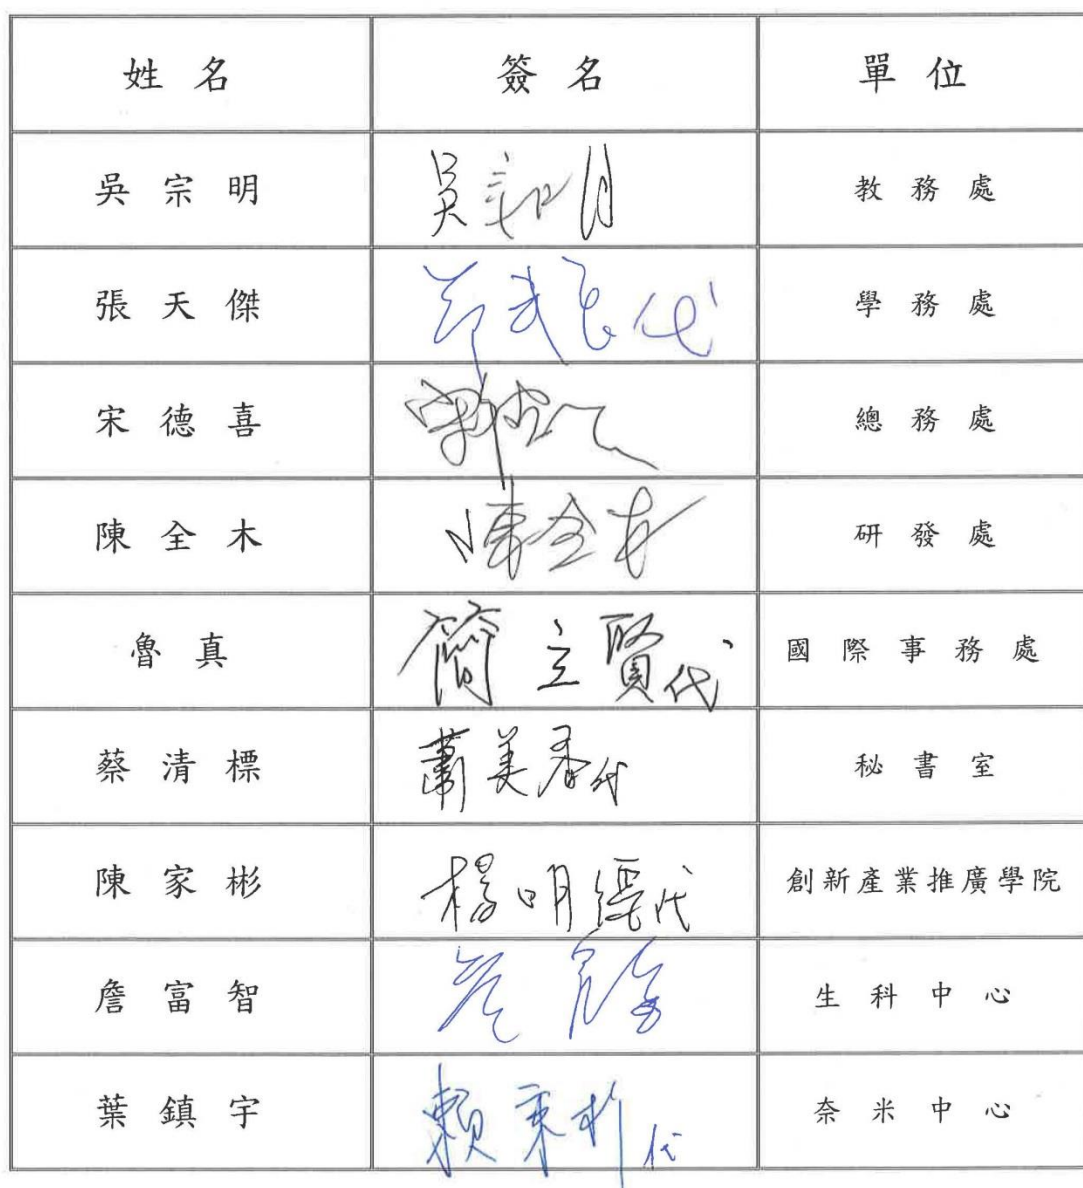 姓名 簽名 單位
吳宗明 吳宗明 教務處
張天傑 代 學務處
宋德喜 總務處
陳全木 陳全木 研發處
魯真 簡立賢代 國際事務處
蔡清標 蕭美香代 秘書室
陳家彬 楊明 代 創新產業推廣學院
詹富智 生科中心
葉鎮宇 賴秉杉代 奈米中心